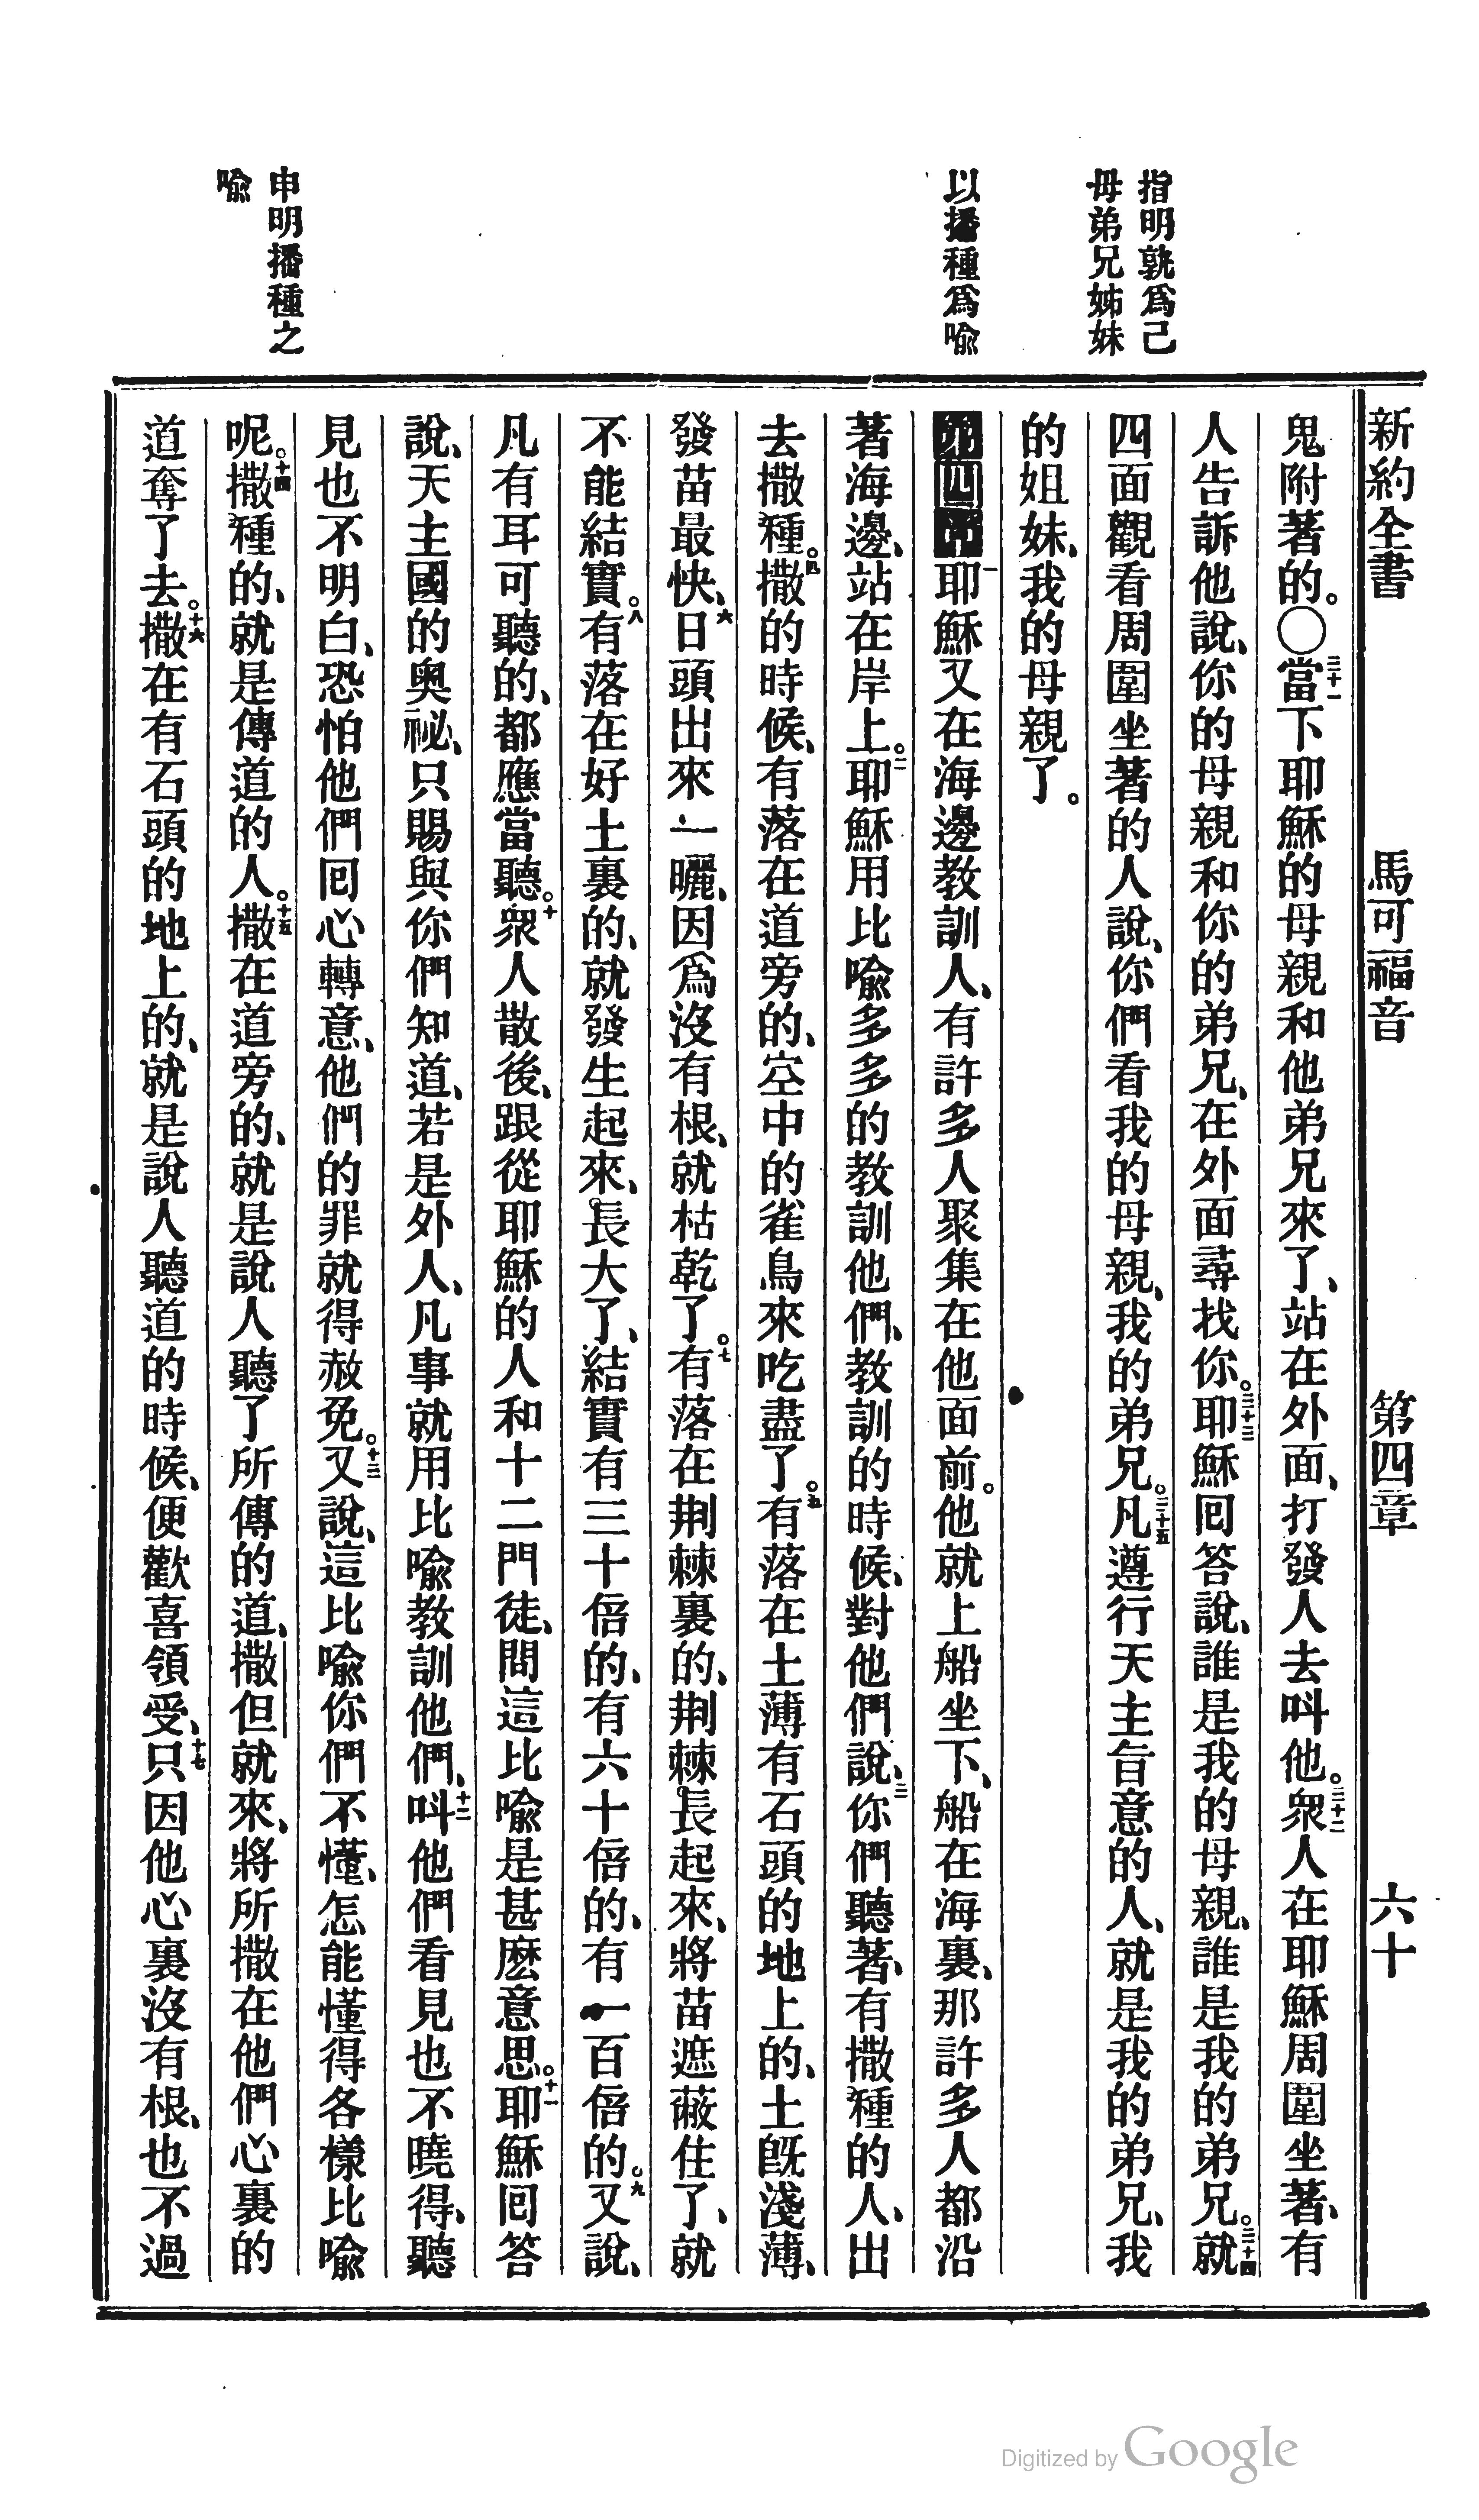 新約全書 馬可福音 第四章 六十
指明孰爲己
母弟兄姊妹
以播種爲喻
申明播種之
喻
鬼附著的。〇三十一當下耶穌的母親和他弟兄來了、站在外面、打發人去呌他。三十二衆人在耶穌周圍坐著、有
人告訴他說、你的母親和你的弟兄、在外面尋找你。三十三耶穌囘答說、誰是我的母親、誰是我的弟兄。三十四就
四面觀看周圍坐著的人說、你們看我的母親、我的弟兄。三十五凡遵行天主旨意的人、就是我的弟兄、我
的姐妹、我的母親了。
第四章一耶穌又在海邊教訓人、有許多人聚集在他面前。他就上船坐下、船在海裏、那許多人都沿
著海邊、站在岸上。二耶穌用比喻多多的教訓他們、教訓的時候、對他們說、三你們聽著、有撒種的人、出
去撒種。四撒的時候、有落在道旁的、空中的雀鳥來吃盡了。五有落在土薄有石頭的地上的、土旣淺薄、
發苗最快、六日頭出來一曬、因爲沒有根、就枯乾了。七有落在荆棘裏的、荆棘長起來、將苗遮蔽住了、就
不能結實。八有落在好土裏的、就發生起來、長大了、結實有三十倍的、有六十倍的、有一百倍的。九又說、
凡有耳可聽的、都應當聽。十衆人散後、跟從耶穌的人和十二門徒、問這比喻是甚麽意思。十一耶穌囘答
說、天主國的奧祕、只賜與你們知道、若是外人、凡事就用比喻教訓他們、十二呌他們看見也不曉得、聽
見也不明白、恐怕他們囘心轉意、他們的罪就得赦免。十三又說、這比喻你們不懂、怎能懂得各樣比喻
呢。十四撒種的、就是傳道的人。十五撒在道旁的、就是說人聽了所傳的道、撒但就來、將所撒在他們心裏的
道奪了去。十六撒在有石頭的地上的、就是說人聽道的時候、便歡喜領受、十七只因他心裏沒有根、也不過
Digitized by Google